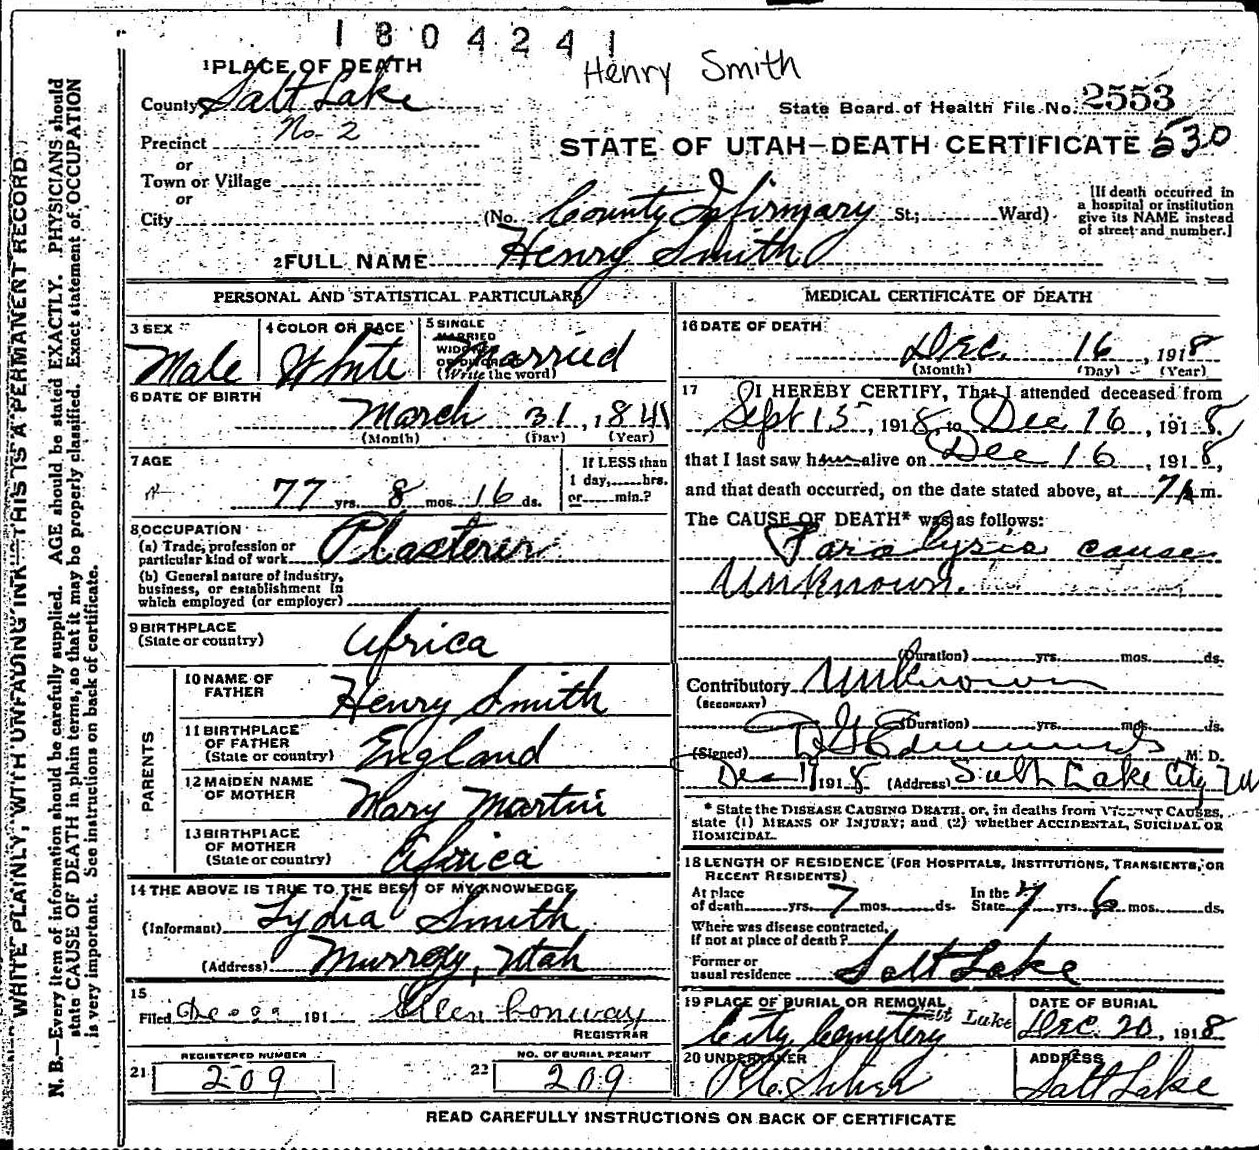 1804241
Henry Smith
1 PLACE OF DEATH
County Salt Lake
State Board of Health File No. 2553
Precinct No 2
STATE OF UTAH—DEATH CERTIFICATE 530
or
Town or Village
or
City
(No. County Infirmary St.; Ward)
[If death occurred in a hospital or institution give its NAME instead of street and number.]
2 FULL NAME Henry Smith
PERSONAL AND STATISTICAL PARTICULARS
3 SEX
Male
4 COLOR OR RACE
White
5 SINGLE
MARRIED
WIDOWED
OR DIVORCED
(Write the word)
Married
6 DATE OF BIRTH
March 31, 1841
(Month) (Day) (Year)
7 AGE
77 yrs. 8 mos. 16 ds.
If LESS than
1 day, hrs.
or min.?
8 OCCUPATION
(a) Trade, profession or
particular kind of work Plasterer
(b) General nature of industry,
business, or establishment in
which employed (or employer)
9 BIRTHPLACE
(State or country) Africa
PARENTS
10 NAME OF
FATHER Henry Smith
11 BIRTHPLACE
OF FATHER
(State or country) England
12 MAIDEN NAME
OF MOTHER Mary Martin
13 BIRTHPLACE
OF MOTHER
(State or country) Africa
14 THE ABOVE IS TRUE TO THE BEST OF MY KNOWLEDGE
(Informant) Lydia Smith
(Address) Murray, Utah
15
Filed 191 Ellen Conway
REGISTRAR
REGISTERED NUMBER
21 209
NO. OF BURIAL PERMIT
22 209
MEDICAL CERTIFICATE OF DEATH
16 DATE OF DEATH
Dec. 16, 1918
(Month) (Day) (Year)
17 I HEREBY CERTIFY, That I attended deceased from
Sept 15, 1918, to Dec 16, 1918,
that I last saw him alive on Dec 16, 1918,
and that death occurred, on the date stated above, at 7 A m.
The CAUSE OF DEATH* was as follows:
Paralysis cause
Unknown.
(Duration) yrs. mos. ds.
Contributory Unknown
(SECONDARY)
(Duration) yrs. mos. ds.
(Signed) Edmunds M. D.
Dec 17 1918 (Address) Salt Lake City
* State the DISEASE CAUSING DEATH, or, in deaths from VIOLENT CAUSES,
state (1) MEANS OF INJURY; and (2) whether ACCIDENTAL, SUICIDAL OR
HOMICIDAL.
18 LENGTH OF RESIDENCE (FOR HOSPITALS, INSTITUTIONS, TRANSIENTS, OR
RECENT RESIDENTS)
At place
of death yrs. 7 mos. ds.
In the
State 7 yrs. 6 mos. ds.
Where was disease contracted,
if not at place of death?
Former or
usual residence Salt Lake
19 PLACE OF BURIAL OR REMOVAL
City Cemetery Salt Lake
DATE OF BURIAL
Dec. 20, 1918
20 UNDERTAKER
ADDRESS
Salt Lake
READ CAREFULLY INSTRUCTIONS ON BACK OF CERTIFICATE
WRITE PLAINLY, WITH UNFADING INK—THIS IS A PERMANENT RECORD
N. B.—Every item of information should be carefully supplied. AGE should be stated EXACTLY. PHYSICIANS should
state CAUSE OF DEATH in plain terms, so that it may be properly classified. Exact statement of OCCUPATION
is very important. See instructions on back of certificate.